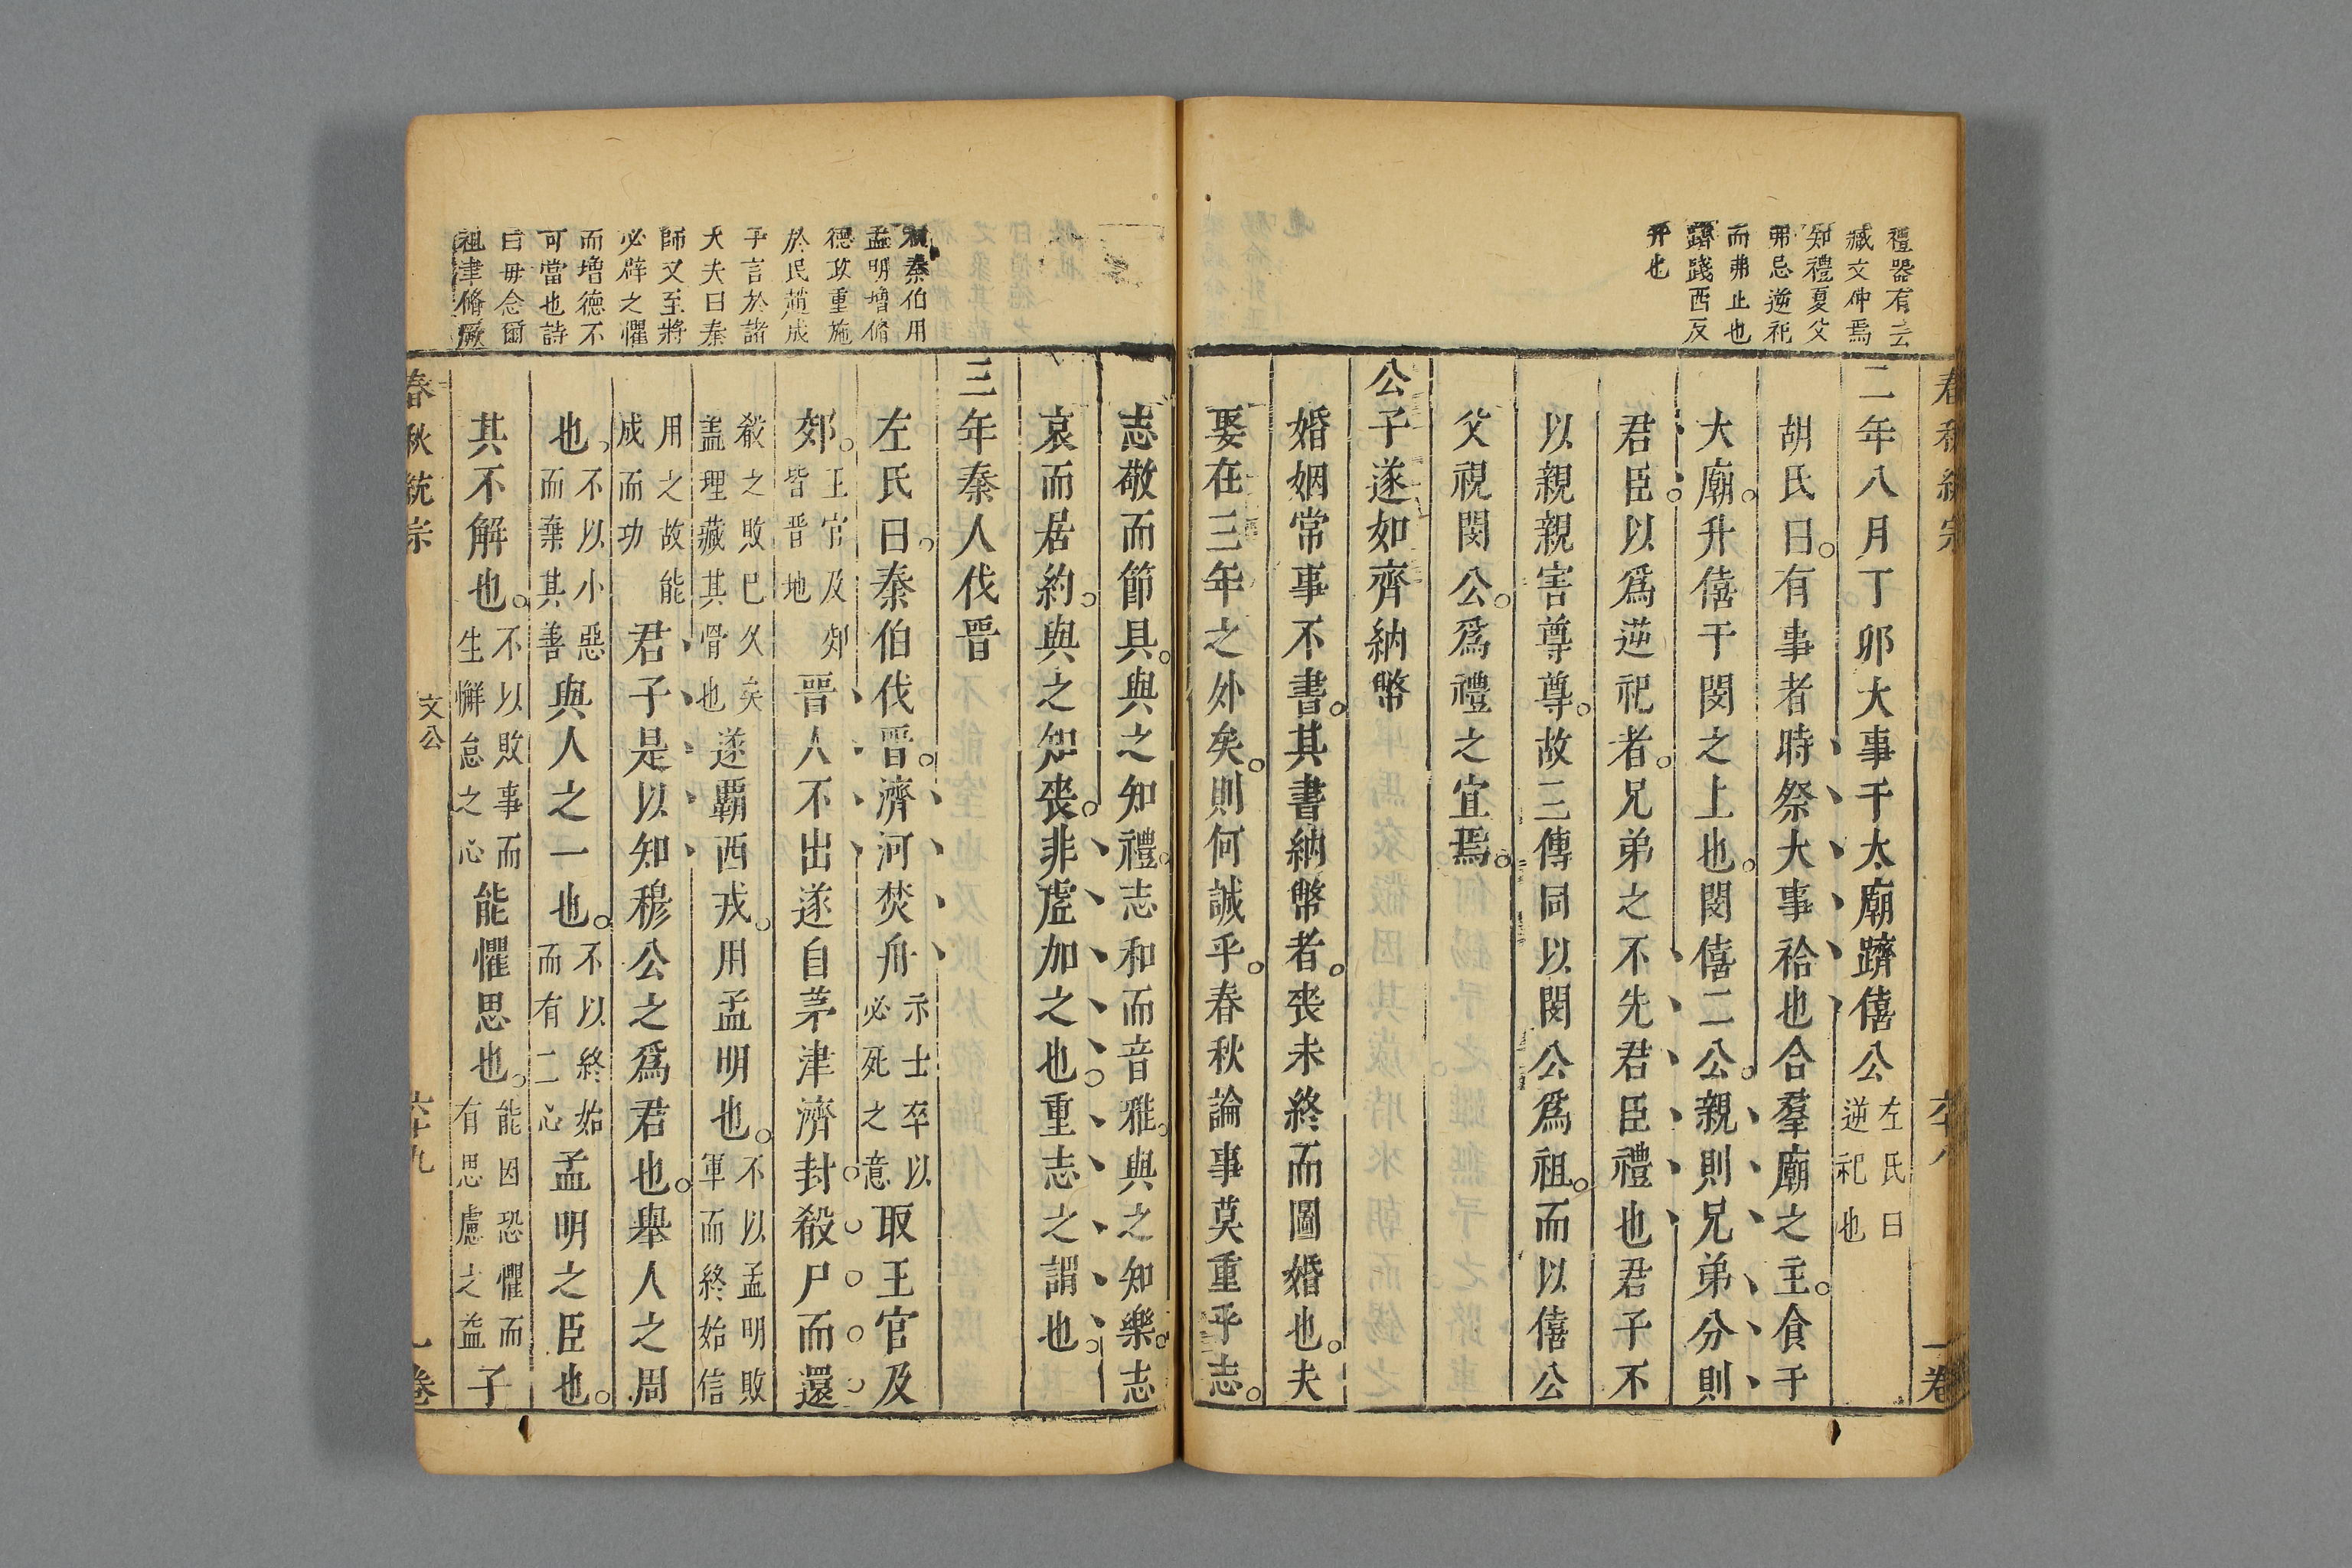 禮器有云
臧文仲焉
知禮夏父
弗忌逆祀
而弗止也
躋踐西反
升也
二年八月丁卯大事于太廟躋僖公左氏曰逆祀也
胡氏曰有事者時祭大事祫也合羣廟之主食于
大廟升僖于閔之上也閔僖二公親則兄弟分則
君臣以爲逆祀者兄弟之不先君臣禮也君子不
以親親害尊尊故三傳同以閔公爲祖而以僖公
父視閔公爲禮之宜焉
公子遂如齊納幣
婚姻常事不書其書納幣者喪未終而圖婚也夫
娶在三年之外矣則何誠乎春秋論事莫重乎志
志敬而節具與之知禮志和而音雅與之知樂志
哀而居約與之知喪非虛加之也重志之謂也
三年秦人伐晉
秦伯用
孟明增脩
德政重施
於民趙成
子言於諸
大夫曰秦
師又至將
必辟之懼
而增德不
可當也詩
曰毋念爾
祖聿脩厥
左氏曰秦伯伐晉濟河焚舟示士卒以必死之意取王官及
郊王官及郊皆晉地晉人不出遂自茅津濟封殽尸而還
殽之敗已久矣盖理藏其骨也遂覇西戎用孟明也不以孟明敗軍而終始信
用之故能成而功君子是以知穆公之爲君也舉人之周
也不以小惡而棄其善與人之一也不以終始而有二心孟明之臣也
其不解也不以敗事而生懈怠之心能懼思也能因恐懼而有思慮之益子
春秋統宗 文公 六十九 一卷